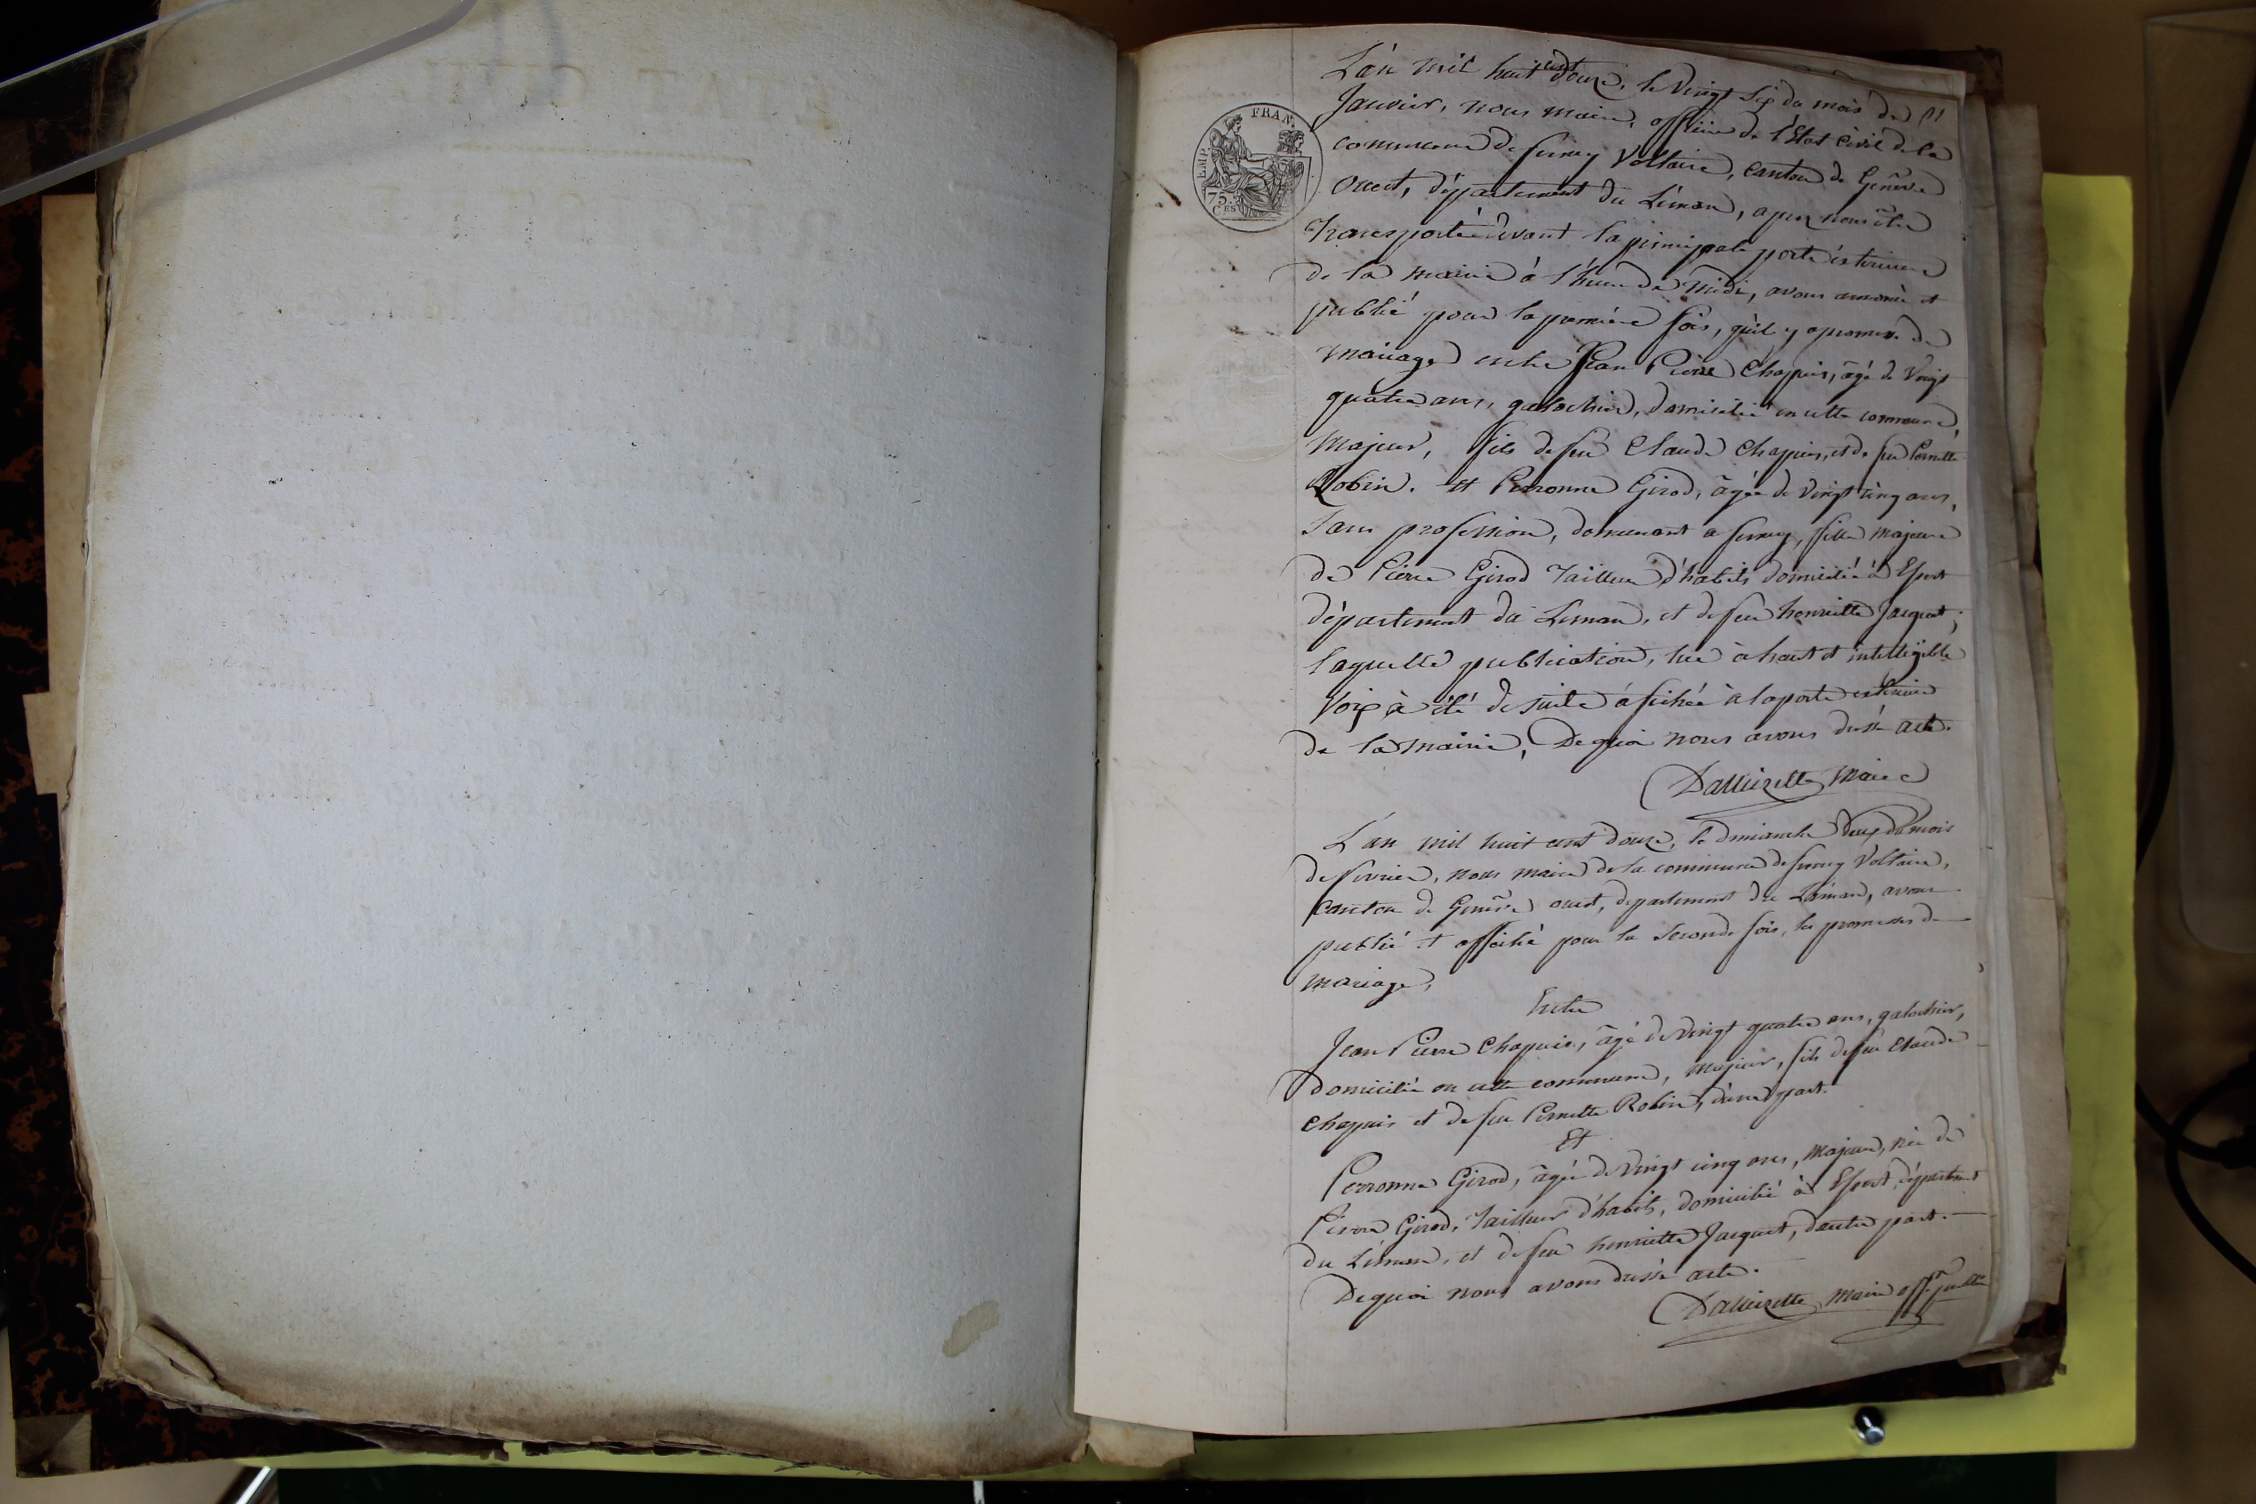 L'an mil huit cent douze, le vingt six du mois de
Janvier, nous maire, officier de l'Etat civil de la
commune de ferney Voltaire, canton de Genêve
Ouest, département du Léman, apres nous être
Transporté devant la principale porte exterieure
de la mairie à l'heure de midi, avons annoncé et
publié pour la première fois, qu'il y a promesse de
mariage entre Jean Pierre Chapuis, âgé de Vingt
quatre ans, galochier, domicilié en cette commune,
Majeur, fils de feu Claude Chapuis, et de feu Pernette
Robin. et Perronne Girod, âgée de Vingt cinq ans,
Sans profession, demeurant a ferney, fille majeure
de Pierre Girod Tailleur d'habits domicilié à
département du Leman, et de feu henriette Jacquet;
laquelle publication, lue à haute et intelligible
Voix à été de suite afichée à la porte exterieure
de la mairie, De quoi nous avons dressé acte.
Dallwizette Maire
L'an mil huit cent douze, le dimanche deux du mois
de fevrier, nous maire de la commune de ferney Voltaire,
canton de Genêve ouest, departement du Léman, avons
publié et affiché pour la seconde fois, les promesses de
mariage,
Entre
Jean Pierre Chapuis, âgé de vingt quatre ans, galochier,
domicilié en cette commune, majeur, fils de feu Claude
Chapuis et de feu Pernette Robin, d'une part.
Et
Perronne Girod, âgée de Vingt cinq ans, majeure, née de
Pierre Girod, Tailleur d'habits, domicilié à département
du Léman, et de feu henriette Jacquet, d'autre part.
De quoi nous avons dressé acte.
Dallwizette, maire off.
EMP. FRAN.
75
CES